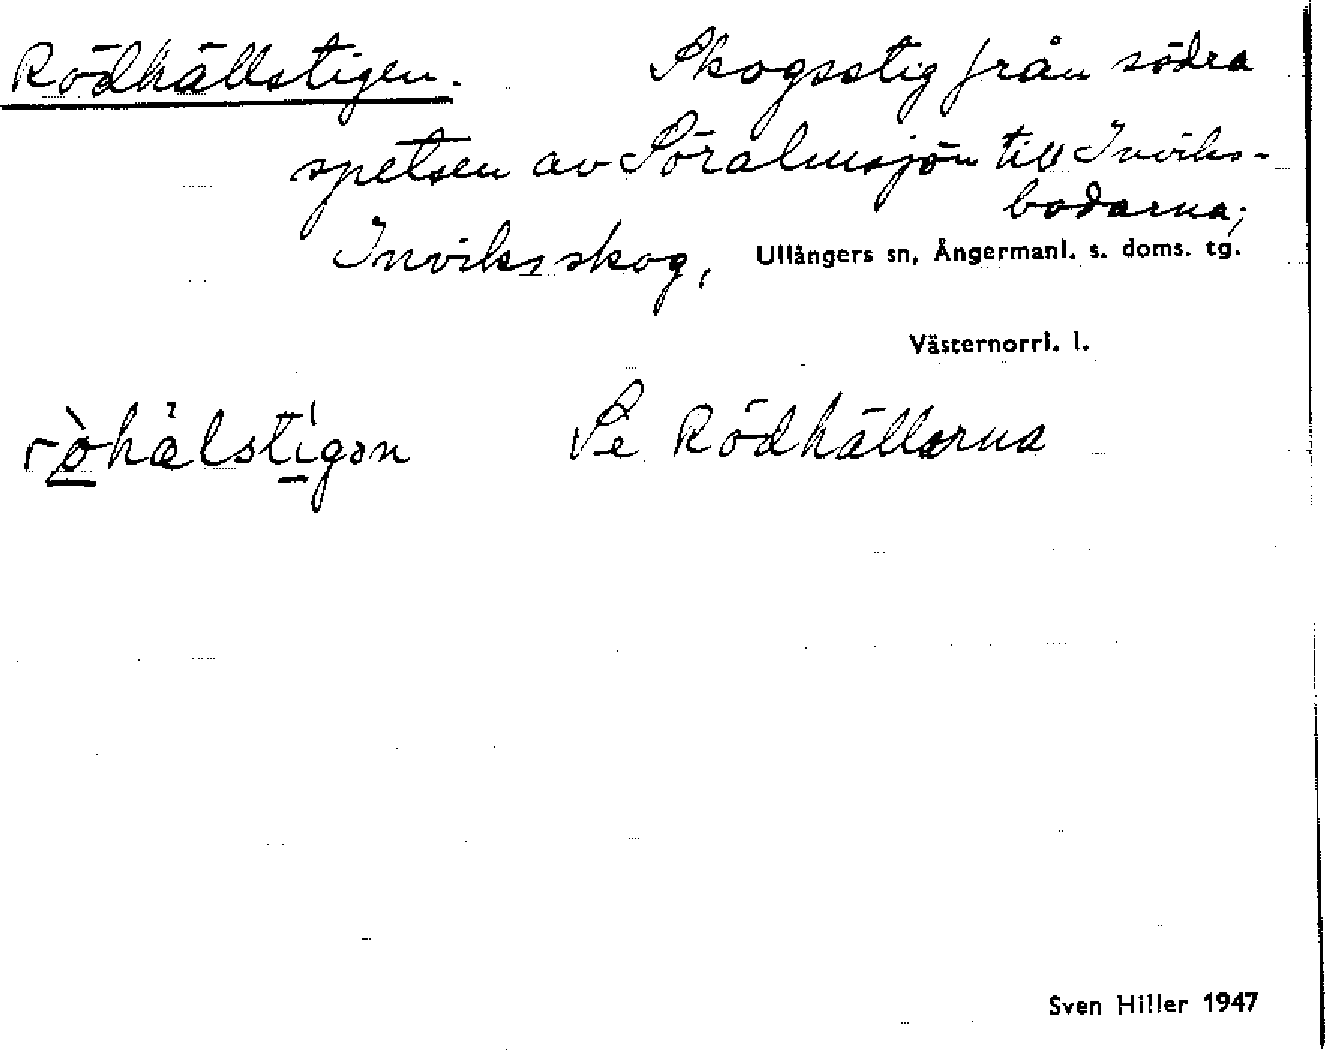 Rödhällstigen. Skogsstig från södra
spetsen av Söralmsjön till Inviks-
bodarna;
Inviksskog, Ullångers sn, Ångermanl. s. doms. tg.
Västernorrl. l.
Se Rödhällorna
Sven Hiller 1947